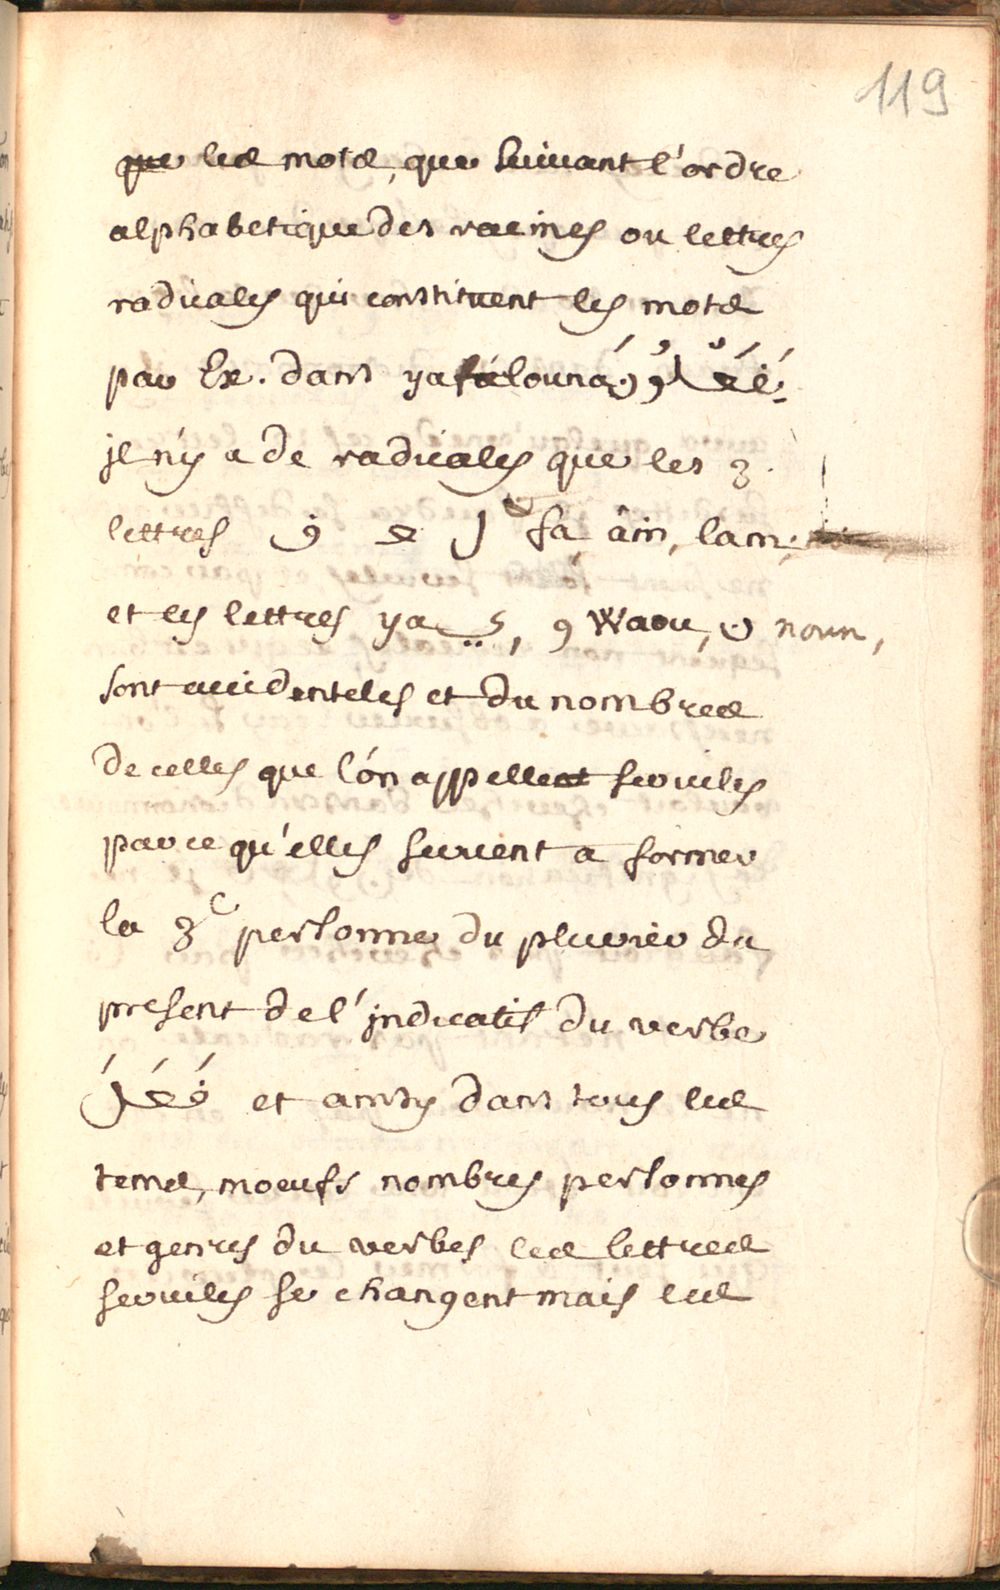 119
que les mots, que suivant l'ordre
alphabetique des racines ou lettres
radicales qui constituent les mots
par Ex. dans yafálouná يَفْعَلُونَ
jl n'y a de radicales que les 3.
lettres ف ع ل fa âin, lam,
et les lettres ya ي, و Waou, ن noun,
sont accidenteles et du nombres
de celles que l'on appellent serviles
parce qu'elles servent a former
la 3e personne du plurier du
present de l'jndicatif du verbe
فَعَلَ et ainsy dans tous les
tems, moeufs nombres personnes
et genres du verbes les lettres
serviles se changent mais les